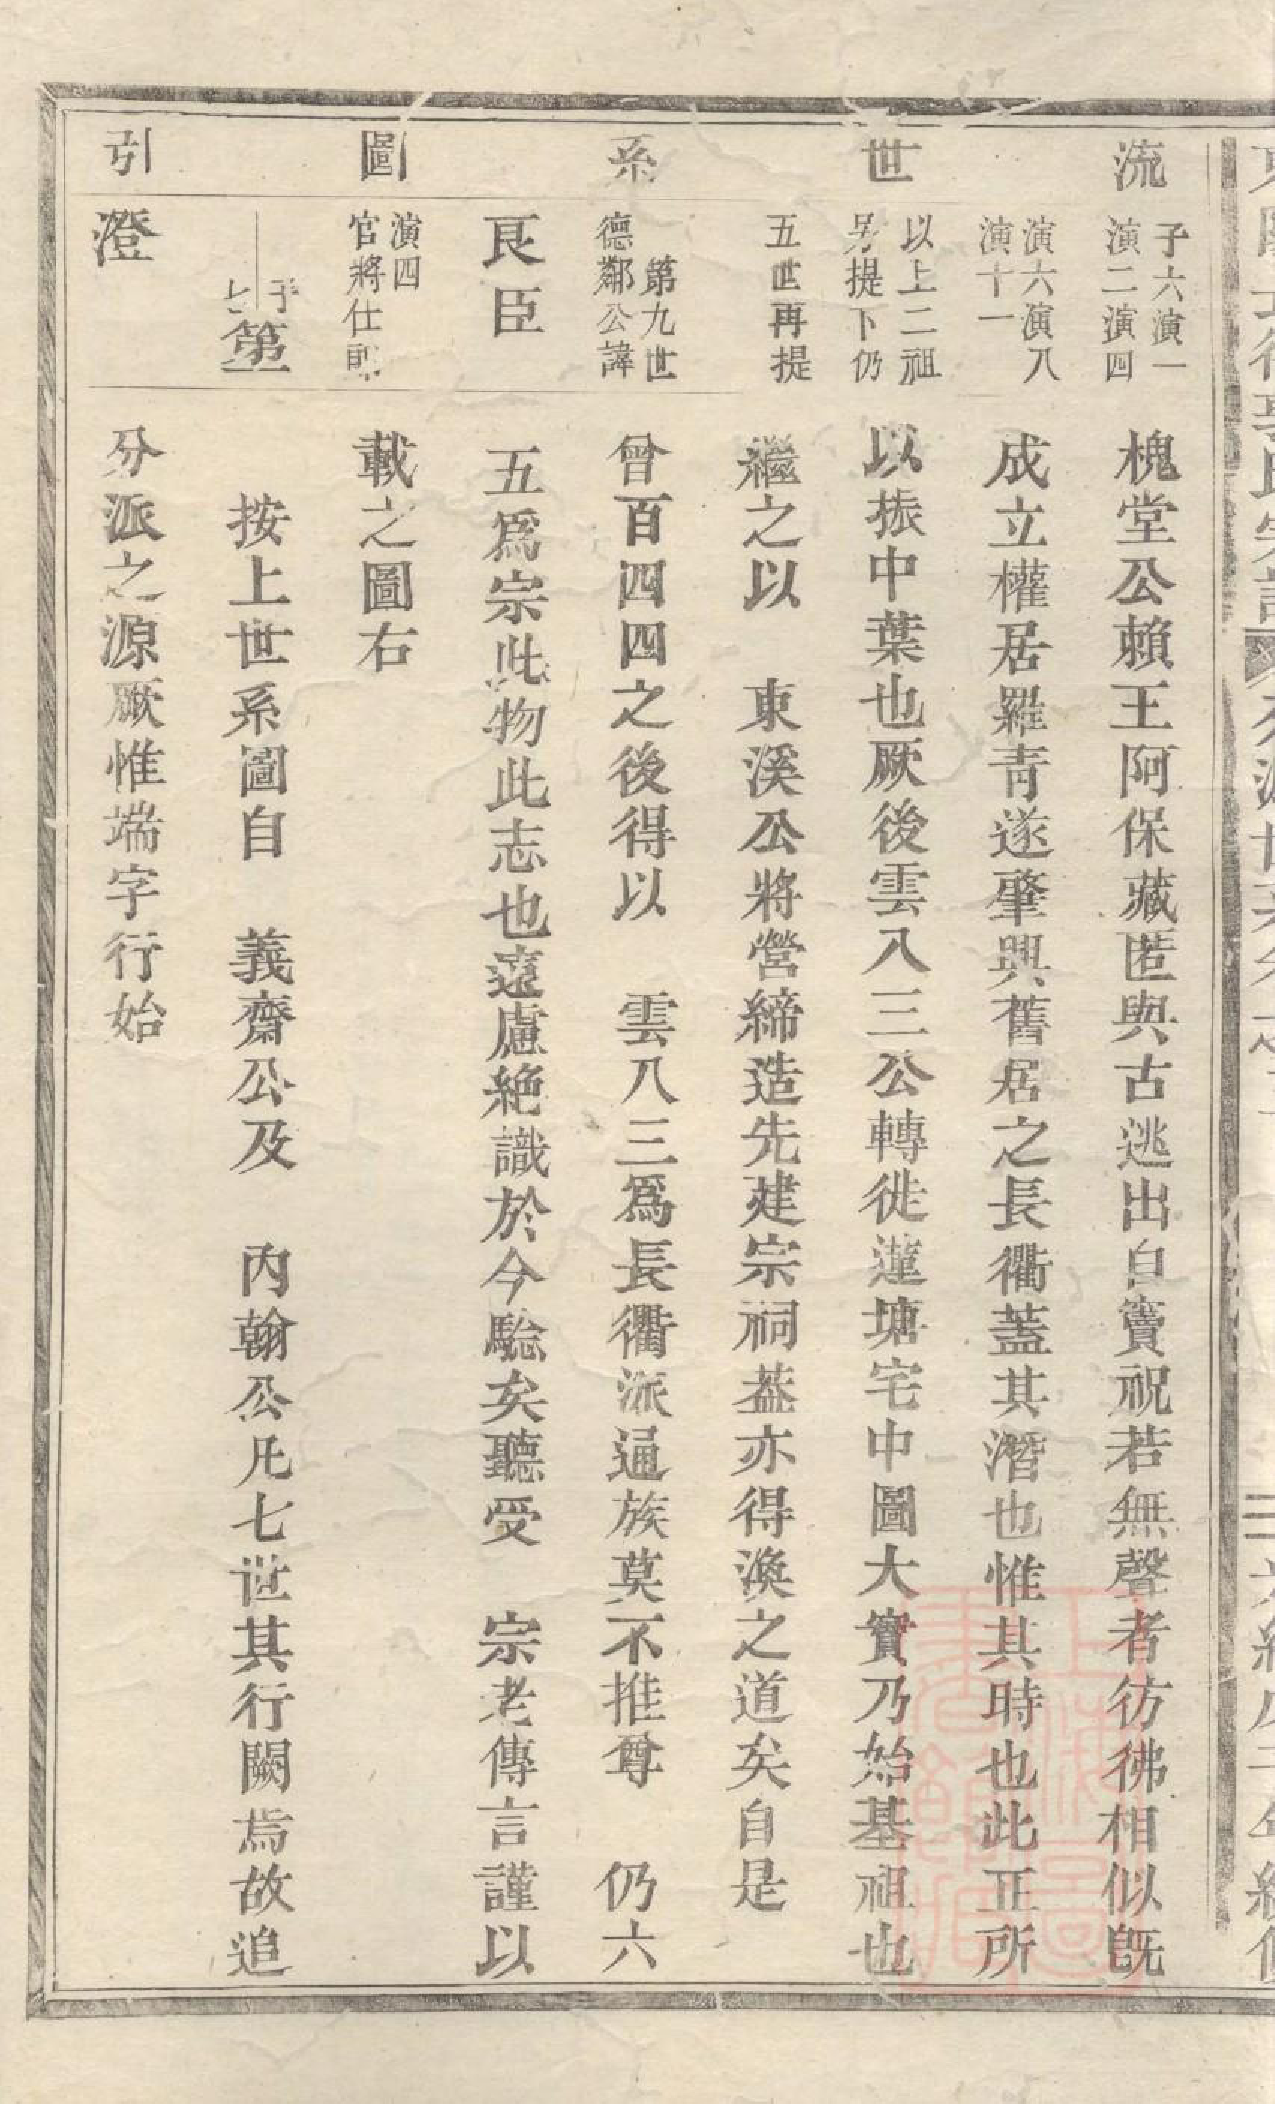 流
世
系
圖
引
子六演一
演二演四
演六演八
演十一
以上二祖
另提下仍
五世再提
第九世
德鄰公諱
艮臣
演四
官將仕郎
第
澄
槐堂公賴王阿保藏匿與古逃出自賣祝若無聲者彷彿相似旣
成立權居羅青遂肇興舊居之長衢蓋其潛也惟其時也此正所
以振中葉也厥後雲八三公轉徙蓮塘宅中圖大實乃始基祖也
繼之以　東溪公將營締造先建宗祠蓋亦得渙之道矣自是
曾百四四之後得以　雲八三爲長衢派通族莫不推尊　仍六
五爲宗此物此志也遠慮絶識於今騐矣聽受　宗老傳言謹以
載之圖右
按上世系圖自　義齋公及　內翰公凡七世其行闕焉故追
分派之源厥惟端字行始